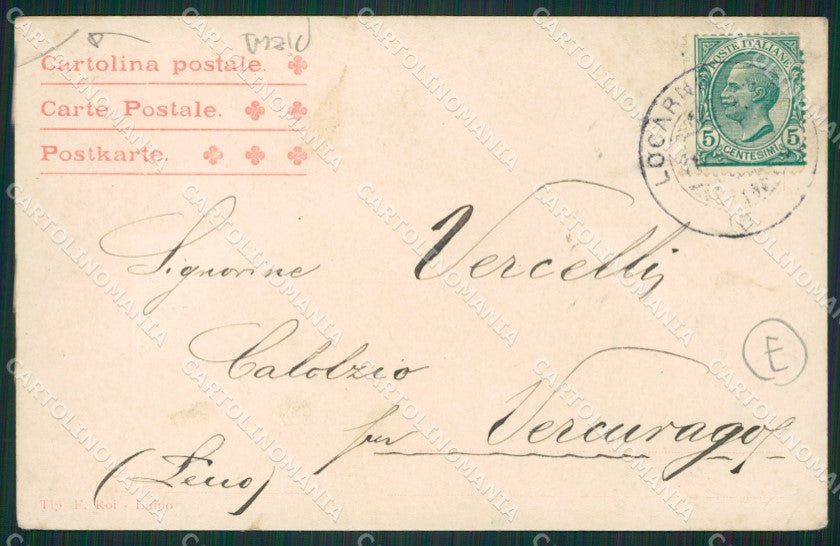 Cartolina postale.
Carte Postale.
Postkarte.
POSTE ITALIANE
5 CENTESIMI 5
LOCARN
Signorine Vercelli
Calolzio
per Vercurago
(Lecco)
E
Tip. F. Roi - Luino
CARTOLINOMANIA